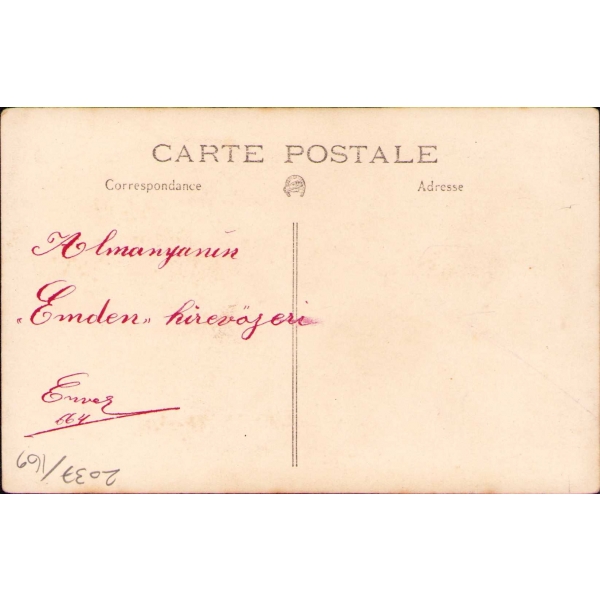 CARTE POSTALE
Correspondance Adresse
Almanyanın
„Emden„ kırevözeri
Enver
664
2037/169